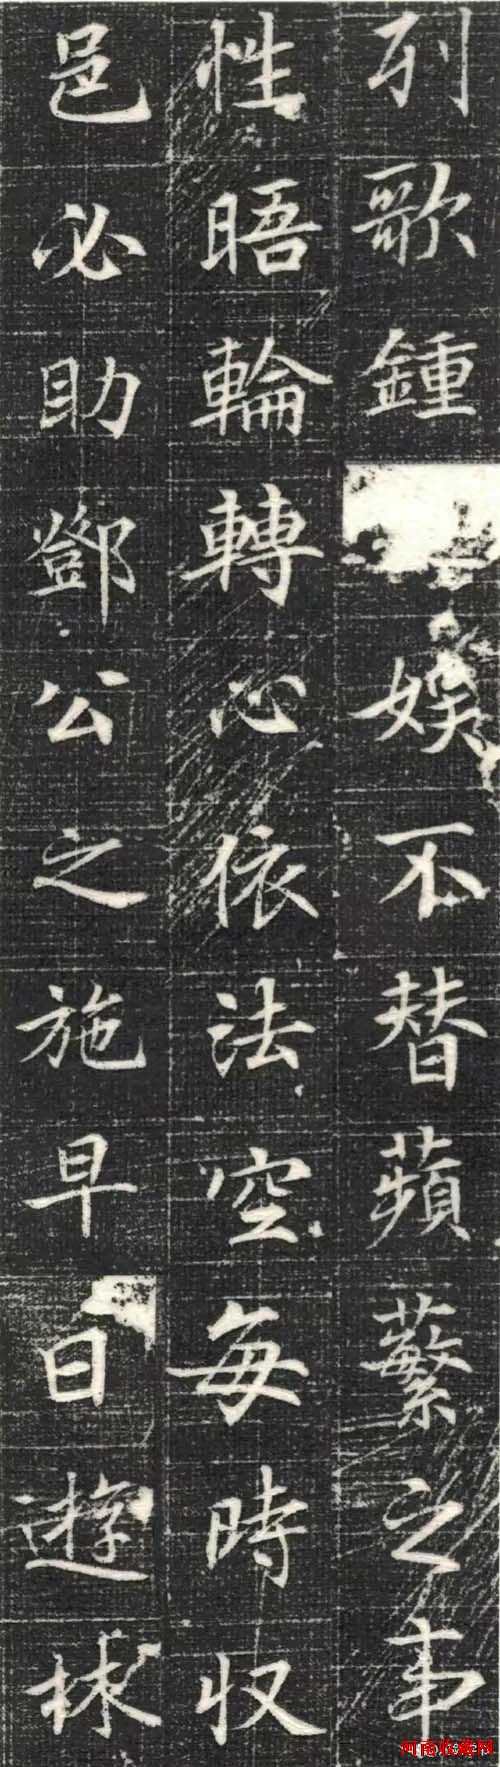 列歌鍾娛不替蘋蘩之事
性晤輪轉心依法空每時収
邑必助鄧公之施早日遊
河南收藏网